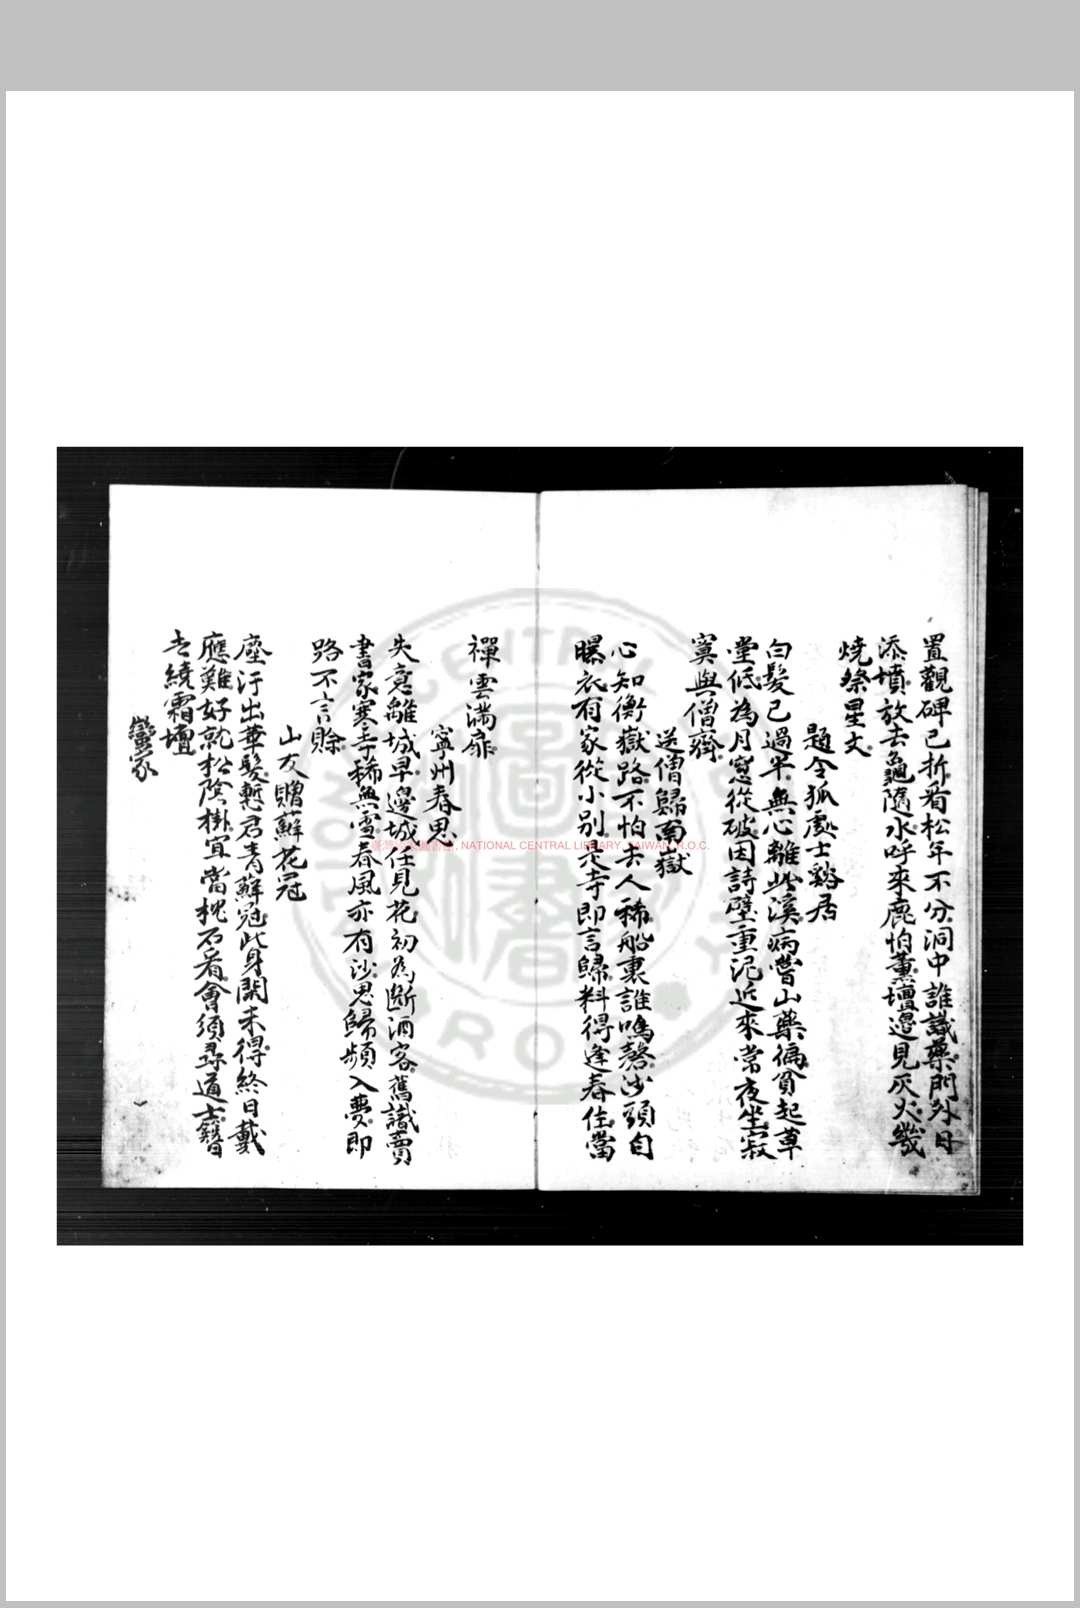 置觀碑已折看松年不分洞中誰識藥門外日
添墳放去龜隨水呼來鹿怕薰壇邊見灰火幾
燒祭星文
題令狐處士谿居
白髮已過半無心離此溪病嘗山藥徧貧起草
堂低為月窓從破因詩壁重泥近來常夜坐寂
寞與僧齊
送僧歸南嶽
心知衡嶽路不怕去人稀船裏誰鳴磬沙頭自
曝衣有家從小別是寺即言歸料得逢春住當
禪雲滿扉
寧州春思
失意離城早邊城任見花初為斷酒客舊識賣
書家寒寺稀無雪春風亦有沙思歸頻入夢即
路不言賒
山友贈蘚花冠
塵汙出華髮慙君青蘚冠此身閑未得終日戴
應難好就松陰掛宜當枕石看會須尋道士簪
去繞霜壇
蠻家
NATIONAL CENTRAL LIBRARY, TAIWAN, R.O.C.